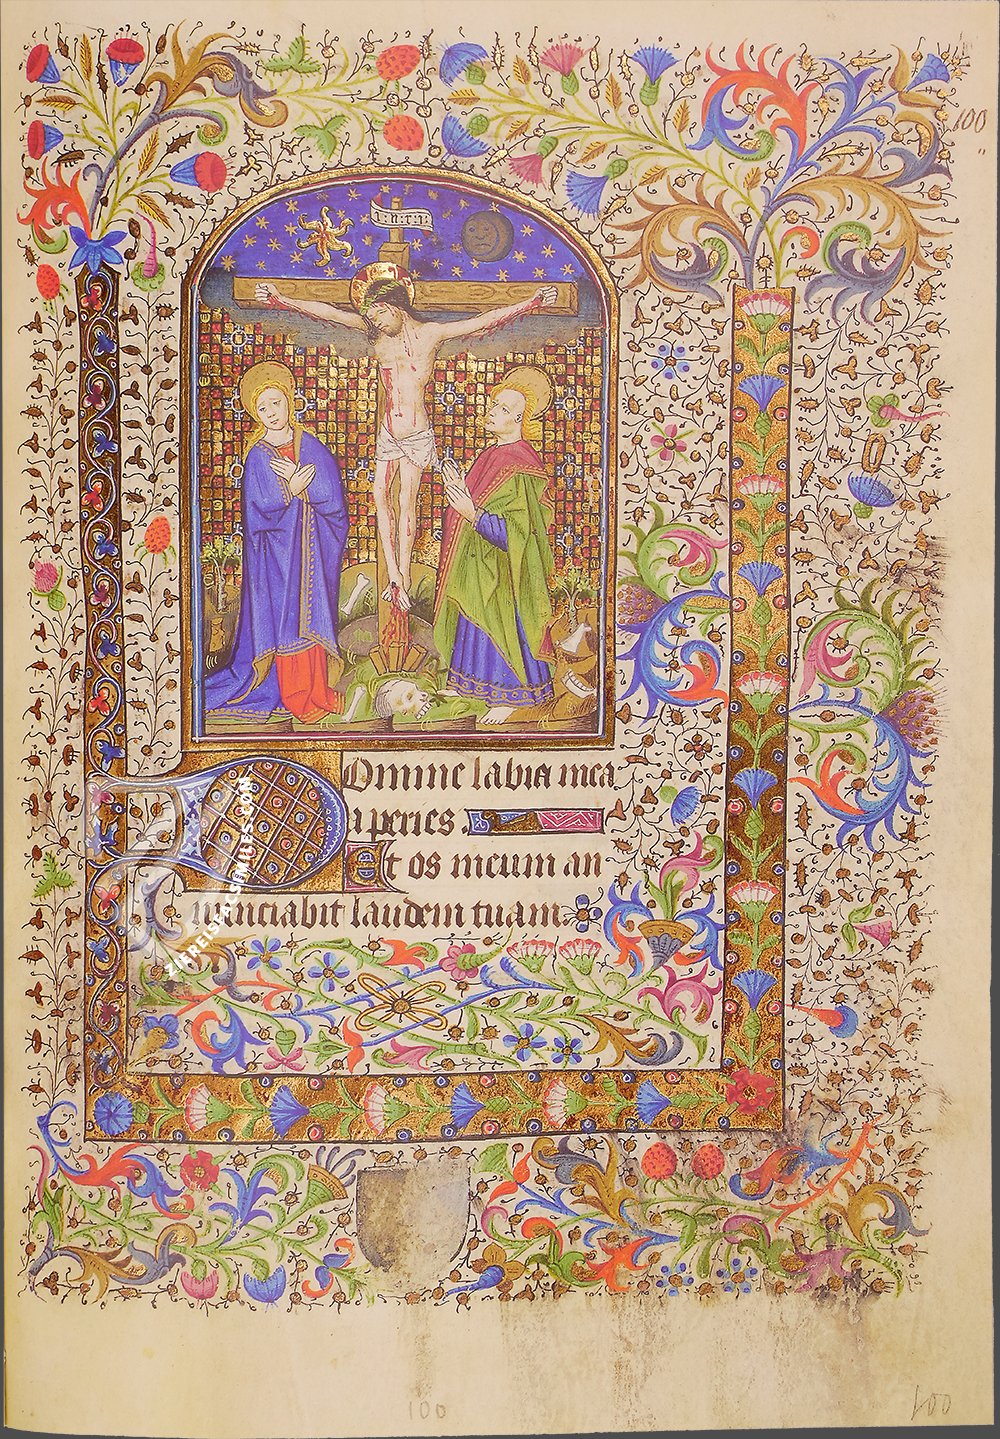 100
I·N·R·I
Domine labia mea
aperies.
Et os meum an
nunciabit laudem tuam
ZIEREIS FACSIMILES.COM
100
100